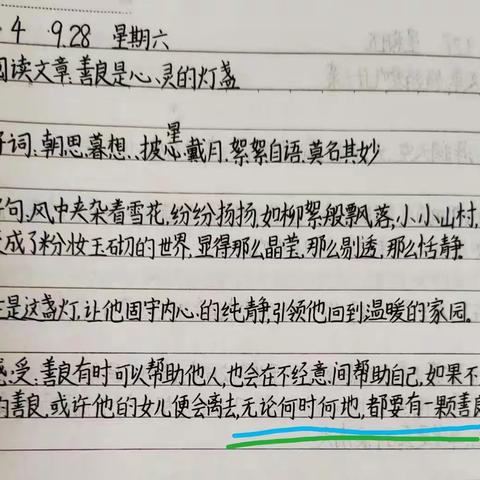 4 9.28 星期六
阅读文章:善良是心灵的灯盏
好词:朝思暮想、披星戴月、絮絮自语、莫名其妙
好句:风中夹杂着雪花,纷纷扬扬,如柳絮般飘落,小小山村,
成了粉妆玉砌的世界,显得那么晶莹,那么剔透,那么恬静.
是这盏灯,让他固守内心的纯静,引领他回到温暖的家园。
感受:善良有时可以帮助他人,也会在不经意间帮助自己,如果不
的善良,或许他的女儿便会离去,无论何时何地,都要有一颗善良